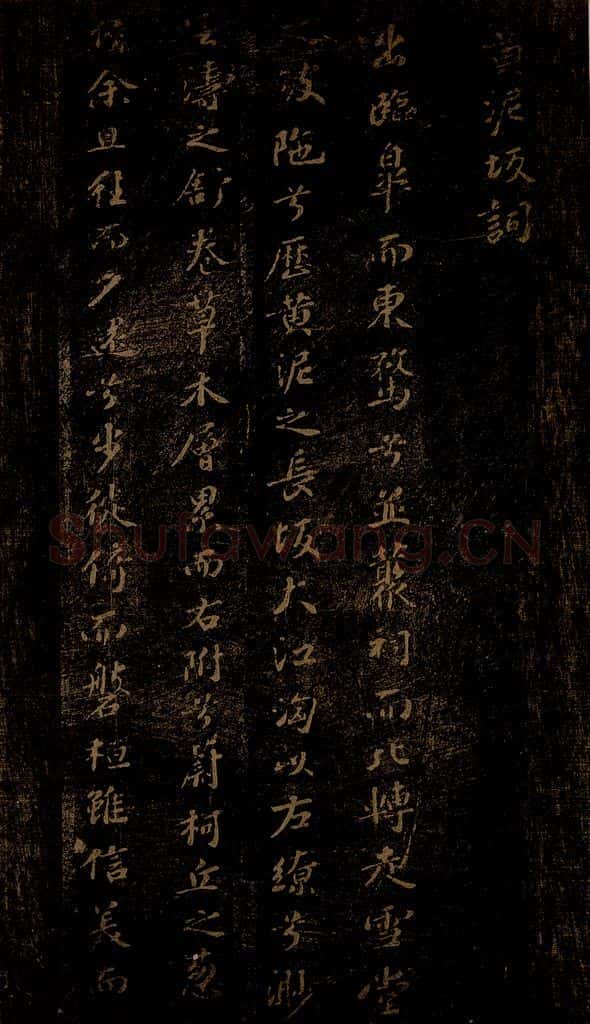 黄泥坂詞
出臨皋而東騖兮並藂祠而北轉走雪堂
之陂陁兮歷黄泥之長坂大江洶以左繚兮渺
雲濤之舒卷草木層累而右附兮蔚柯丘之葱
蒨余旦往而夕還兮步徙倚而磐桓雖信美而
Shufawang.CN